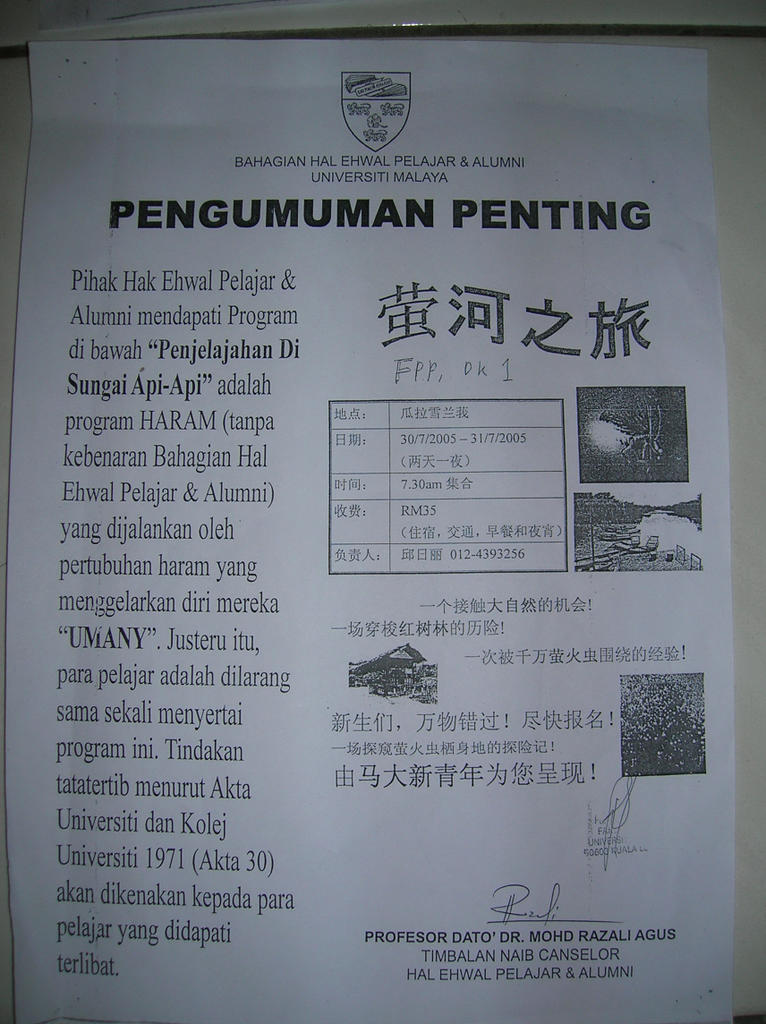 BAHAGIAN HAL EHWAL PELAJAR & ALUMNI
UNIVERSITI MALAYA
PENGUMUMAN PENTING
Pihak Hak Ehwal Pelajar &
Alumni mendapati Program
di bawah “Penjelajahan Di
Sungai Api-Api” adalah
program HARAM (tanpa
kebenaran Bahagian Hal
Ehwal Pelajar & Alumni)
yang dijalankan oleh
pertubuhan haram yang
menggelarkan diri mereka
“UMANY”. Justeru itu,
para pelajar adalah dilarang
sama sekali menyertai
program ini. Tindakan
tatatertib menurut Akta
Universiti dan Kolej
Universiti 1971 (Akta 30)
akan dikenakan kepada para
pelajar yang didapati
terlibat.
萤河之旅
FPP, DK 1
地点： 瓜拉雪兰莪
日期： 30/7/2005 – 31/7/2005
（两天一夜）
时间： 7.30am 集合
收费： RM35
（住宿，交通，早餐和夜宵）
负责人： 邱日丽 012-4393256
一个接触大自然的机会!
一场穿梭红树林的历险!
一次被千万萤火虫围绕的经验!
新生们，万物错过！尽快报名！
一场探窥萤火虫栖身地的探险记!
由马大新青年为您呈现！
UNIVERSI
50603 KUALA L
PROFESOR DATO’ DR. MOHD RAZALI AGUS
TIMBALAN NAIB CANSELOR
HAL EHWAL PELAJAR & ALUMNI